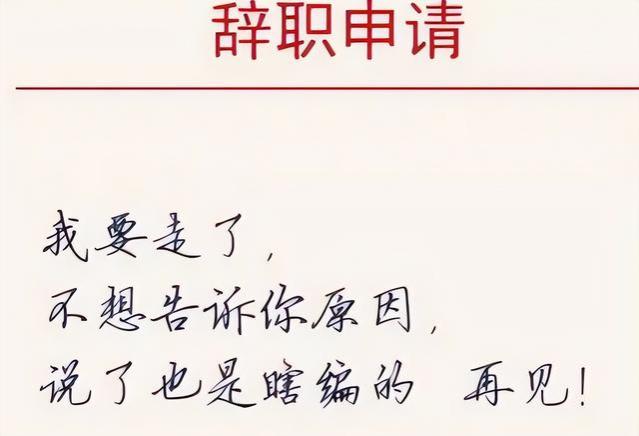 辞职申请
我要走了,
不想告诉你原因,
说了也是瞎编的 再见!